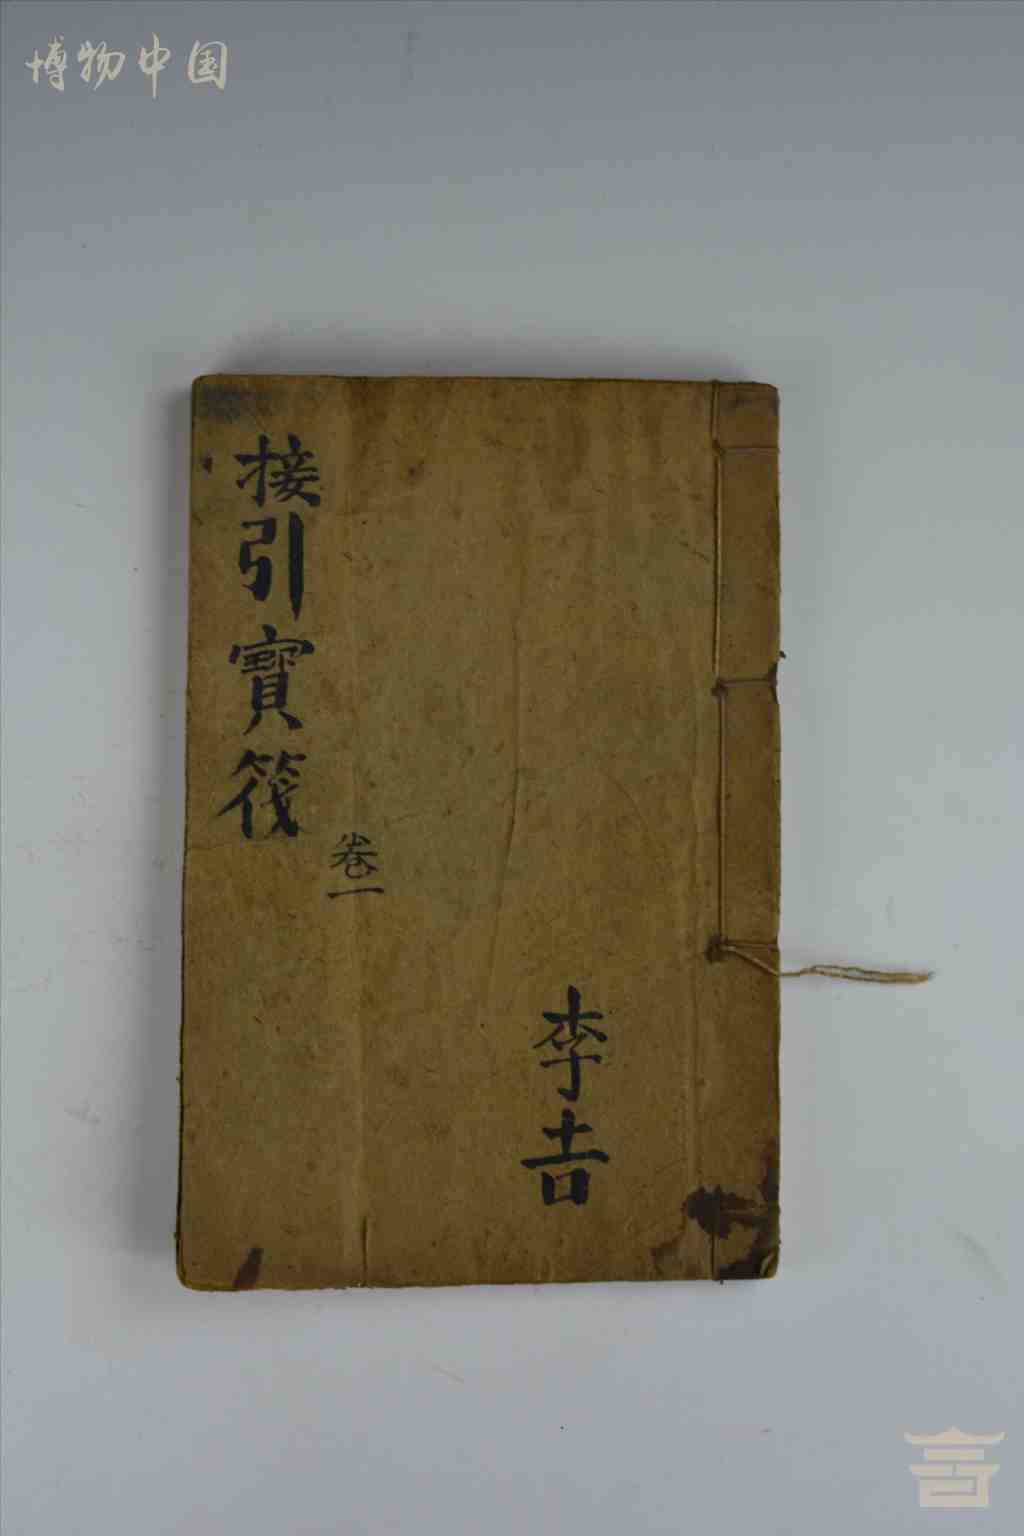 博物中国
接引寳筏
卷一
李吉